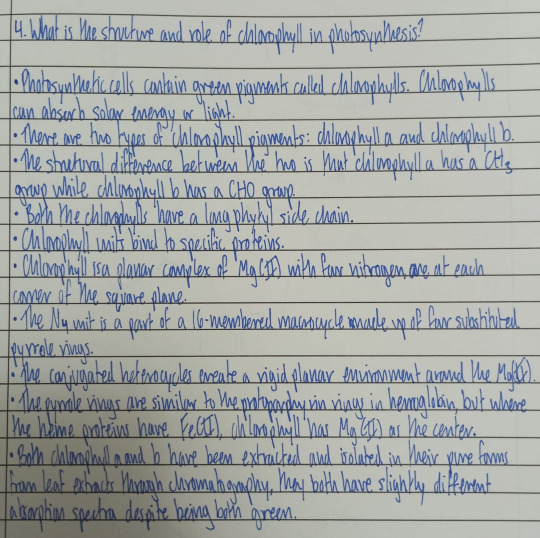 4. What is the structure and role of chlorophyll in photosynthesis?
• Photosynthetic cells contain green pigments called chlorophylls. Chlorophylls
can absorb solar energy or light.
• There are two types of chlorophyll pigments: chlorophyll a and chlorophyll b.
• The structural difference between the two is that chlorophyll a has a CH₃
group while chlorophyll b has a CHO group.
• Both the chlorophylls have a long phytyl side chain.
• Chlorophyll units bind to specific proteins.
• Chlorophyll is a planar complex of Mg(II) with four nitrogen, one at each
corner of the square plane.
• The N₄ unit is a part of a 16-membered macrocycle made up of four substituted
pyrrole rings.
• The conjugated heterocycles create a rigid planar environment around the Mg(II).
• The pyrrole rings are similar to the protoporphyrin rings in hemoglobin, but where
the heme proteins have Fe(II), chlorophyll has Mg(II) as the center.
• Both chlorophyll a and b have been extracted and isolated in their pure forms
from leaf extracts through chromatography, they both have slightly different
absorption spectra despite being both green.